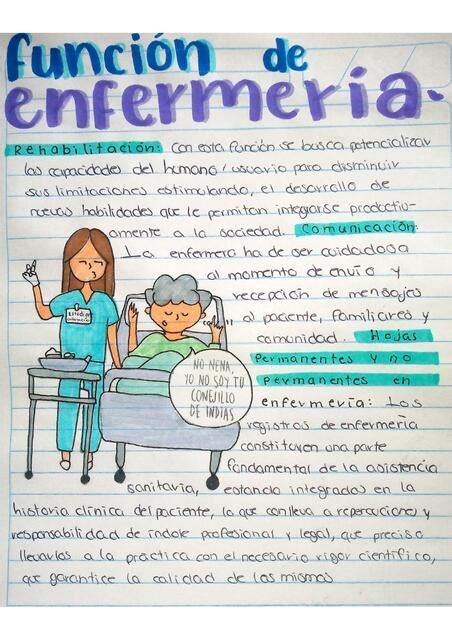 función de
enfermería.
Rehabilitación: Con esta función se busca potencializar
las capacidades del humano/usuario para disminuir
sus limitaciones estimulando, el desarrollo de
nuevas habilidades que le permitan integrarse productiv-
amente a la sociedad. Comunicación:
La enfermera ha de ser cuidadosa
al momento de envío y
recepción de mensajes
al paciente, familiares y
comunidad. Hojas
Permanentes y no
permanentes en
enfermería: Los
registros de enfermería
constituyen una parte
fundamental de la asistencia
sanitaria, estando integrados en la
historia clínica del paciente, lo que conlleva a repercusiones y
responsabilidad de índole profesional y legal, que preciso
llevarlos a la práctica con el necesario rigor científico,
que garantice la calidad de los mismos
NO NENA,
YO NO SOY TU
CONEJILLO
DE INDIAS